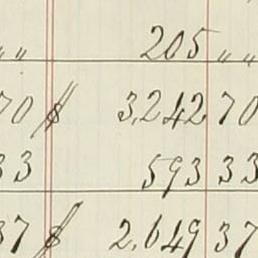 „ „ 205 „ „
70 $ 3,242 70
33 593 33
37 $ 2,649 37